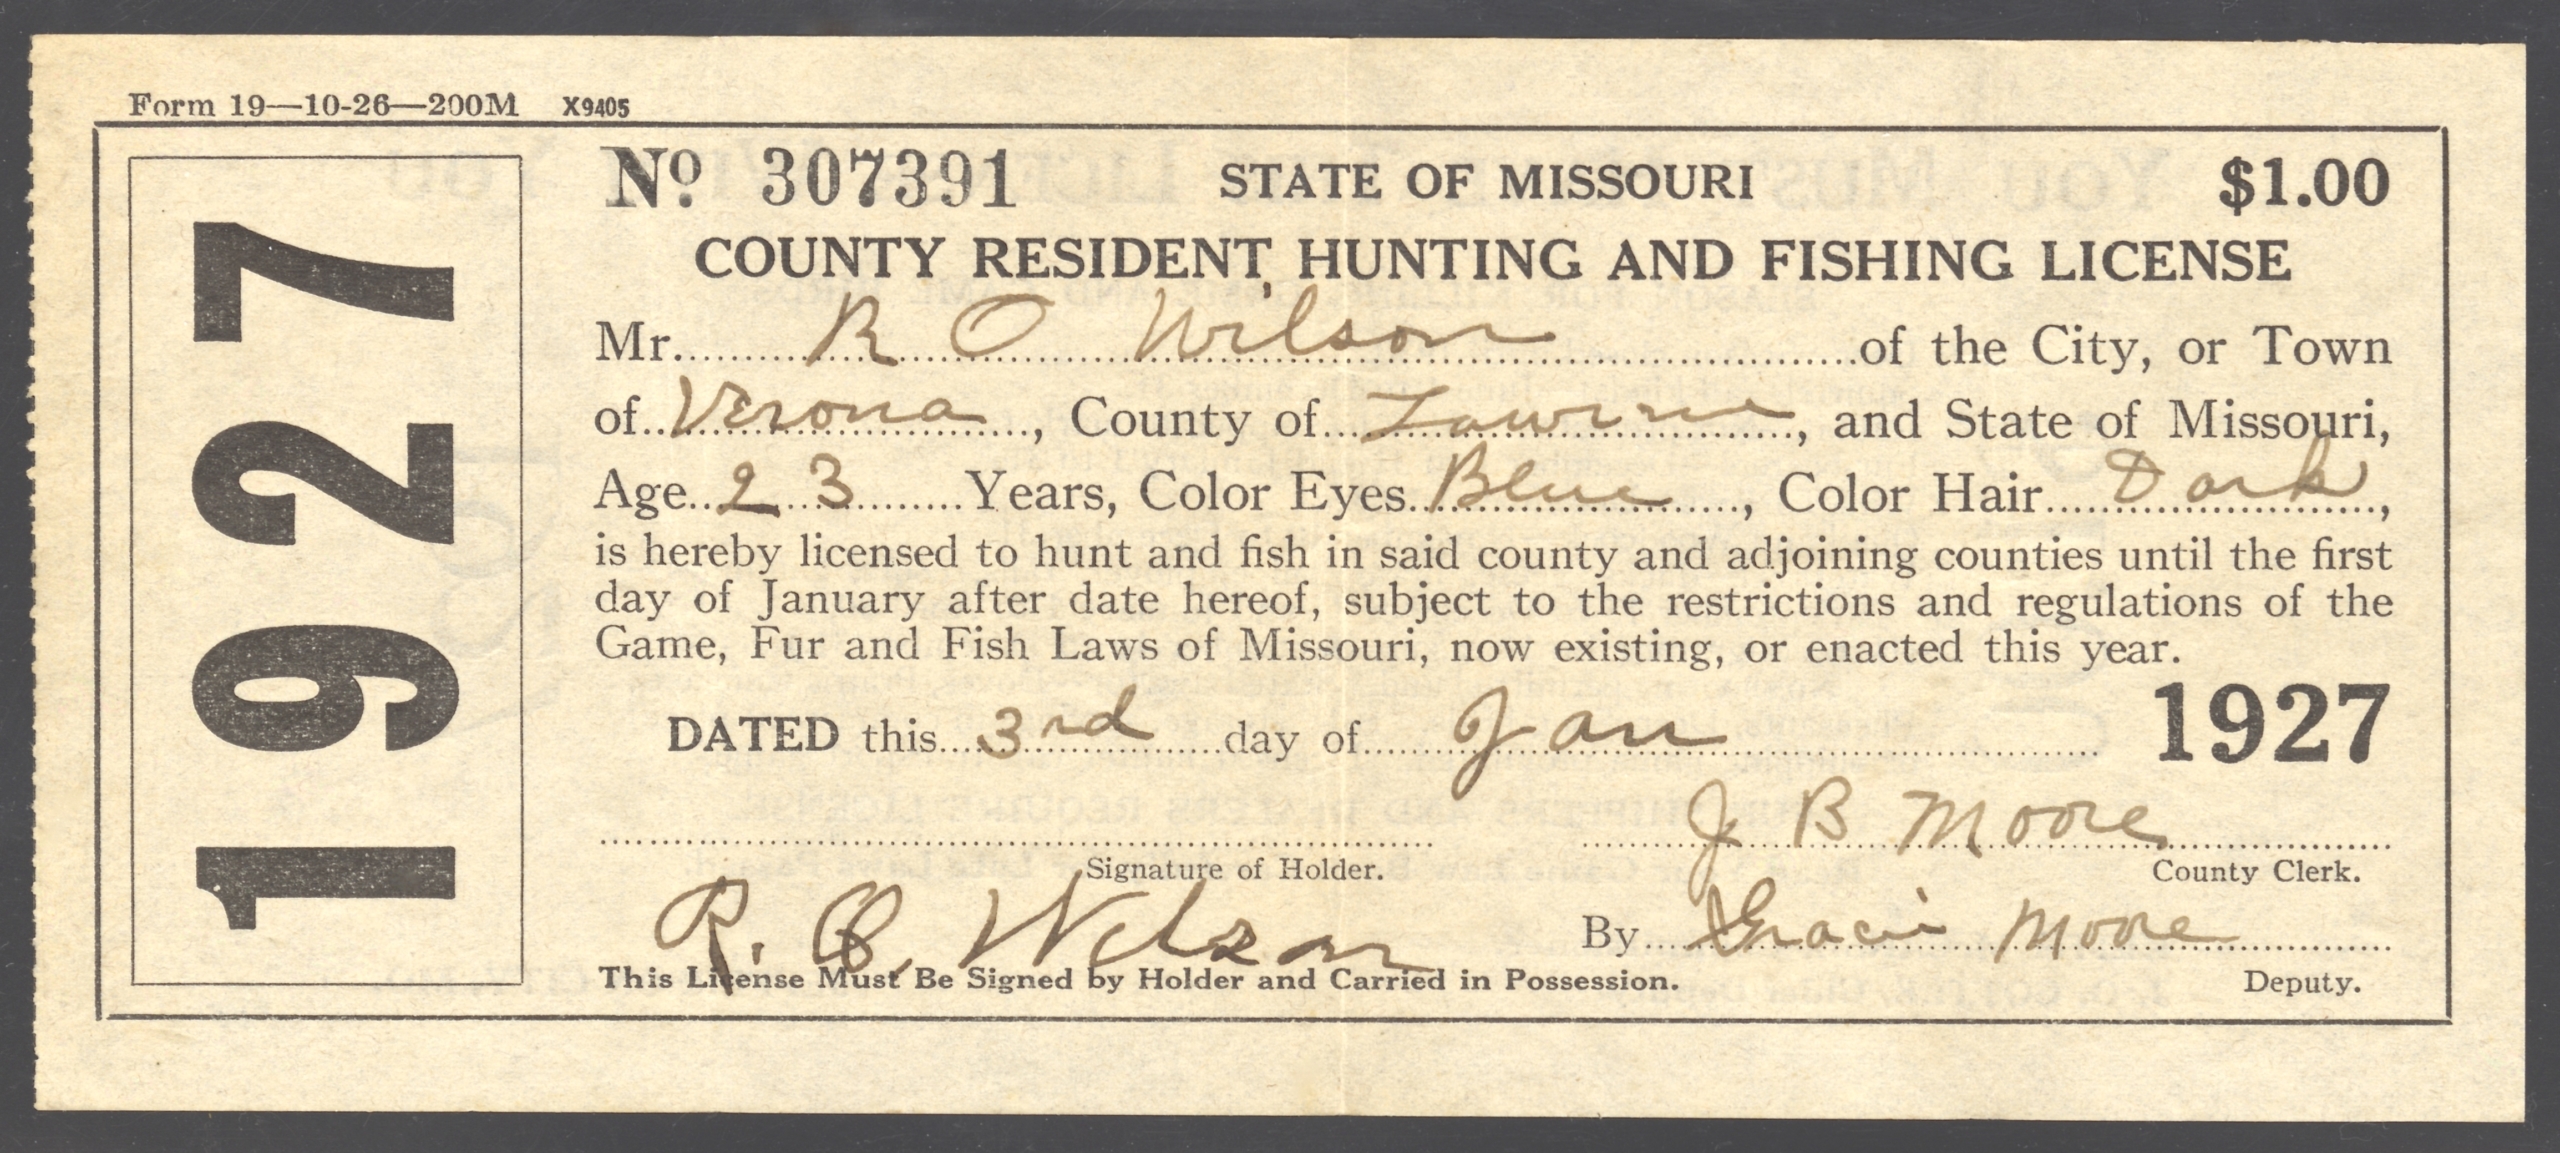 Form 19—10-26—200M X9405
1927
No. 307391 STATE OF MISSOURI $1.00
COUNTY RESIDENT HUNTING AND FISHING LICENSE
Mr. R O Wilson of the City, or Town
of Verona, County of Lawrence, and State of Missouri,
Age 23 Years, Color Eyes Blue, Color Hair Dark,
is hereby licensed to hunt and fish in said county and adjoining counties until the first
day of January after date hereof, subject to the restrictions and regulations of the
Game, Fur and Fish Laws of Missouri, now existing, or enacted this year.
DATED this 3rd day of Jan 1927
J B Moore
Signature of Holder. County Clerk.
R. O. Wilson By Gracie Moore
This License Must Be Signed by Holder and Carried in Possession. Deputy.